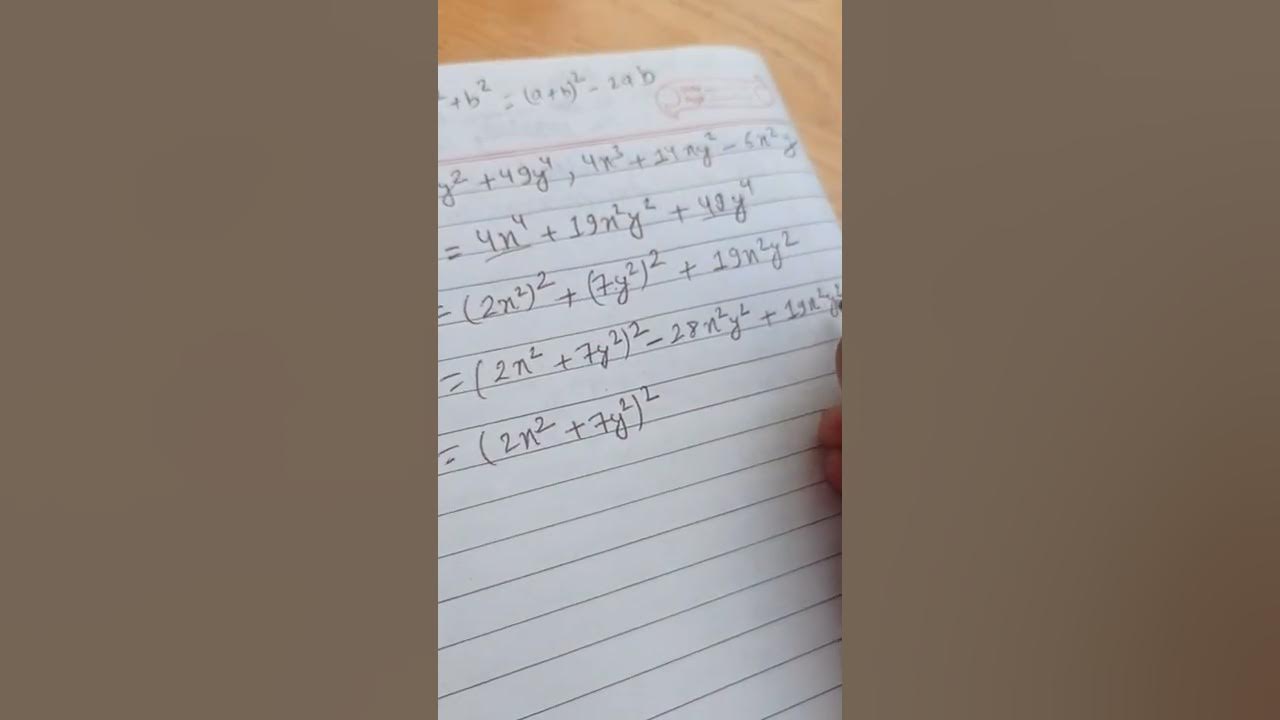 ² + b² = (a+b)² - 2ab
y² + 49y⁴, 4x³ + 14xy² - 6x²y
= 4x⁴ + 19x²y² + 49y⁴
= (2x²)² + (7y²)² + 19x²y²
= (2x² + 7y²)² - 28x²y² + 19x²y²
= (2x² + 7y²)²